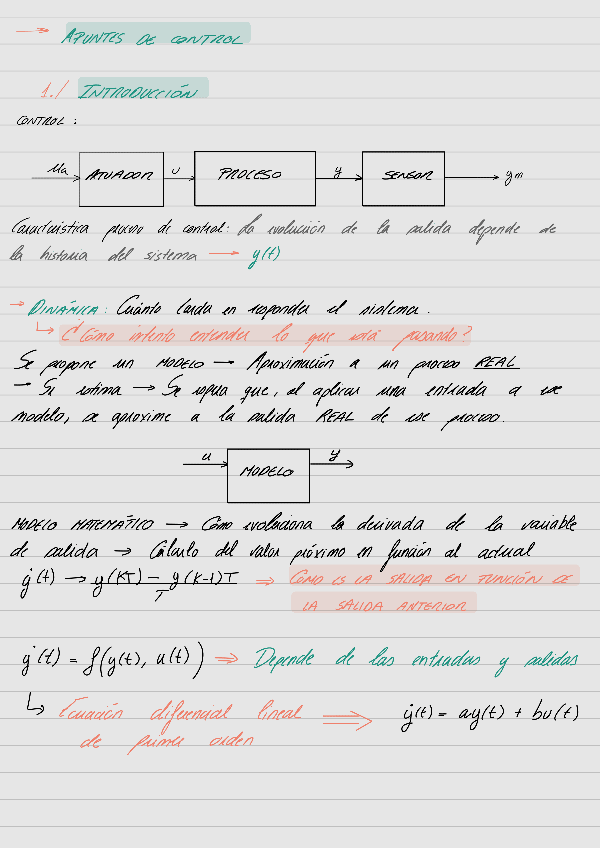 → APUNTES DE CONTROL
1./ INTRODUCCIÓN
CONTROL:
Ua ATUADOR u PROCESO y SENSOR ym
Característica proceso de control: la evolución de la salida depende de
la historia del sistema → y(t)
→ DINÁMICA: Cuánto tarda en responder el sistema.
↳ ¿Cómo intento entender lo que está pasando?
Se propone un MODELO → Aproximación a un proceso REAL
→ Se estima → Se espera que, al aplicar una entrada a ese
modelo, se aproxime a la salida REAL de ese proceso.
u MODELO y
MODELO MATEMÁTICO → Cómo evoluciona la derivada de la variable
de salida → Cálculo del valor próximo en función al actual
ẏ(t) → y(KT) - y(K-1)T ⇒ CÓMO ES LA SALIDA EN FUNCIÓN DE
T
LA SALIDA ANTERIOR
ẏ(t) = f(y(t), u(t)) ⇒ Depende de las entradas y salidas
↳ Ecuación diferencial lineal ⇒ ẏ(t) = ay(t) + bu(t)
de primer orden